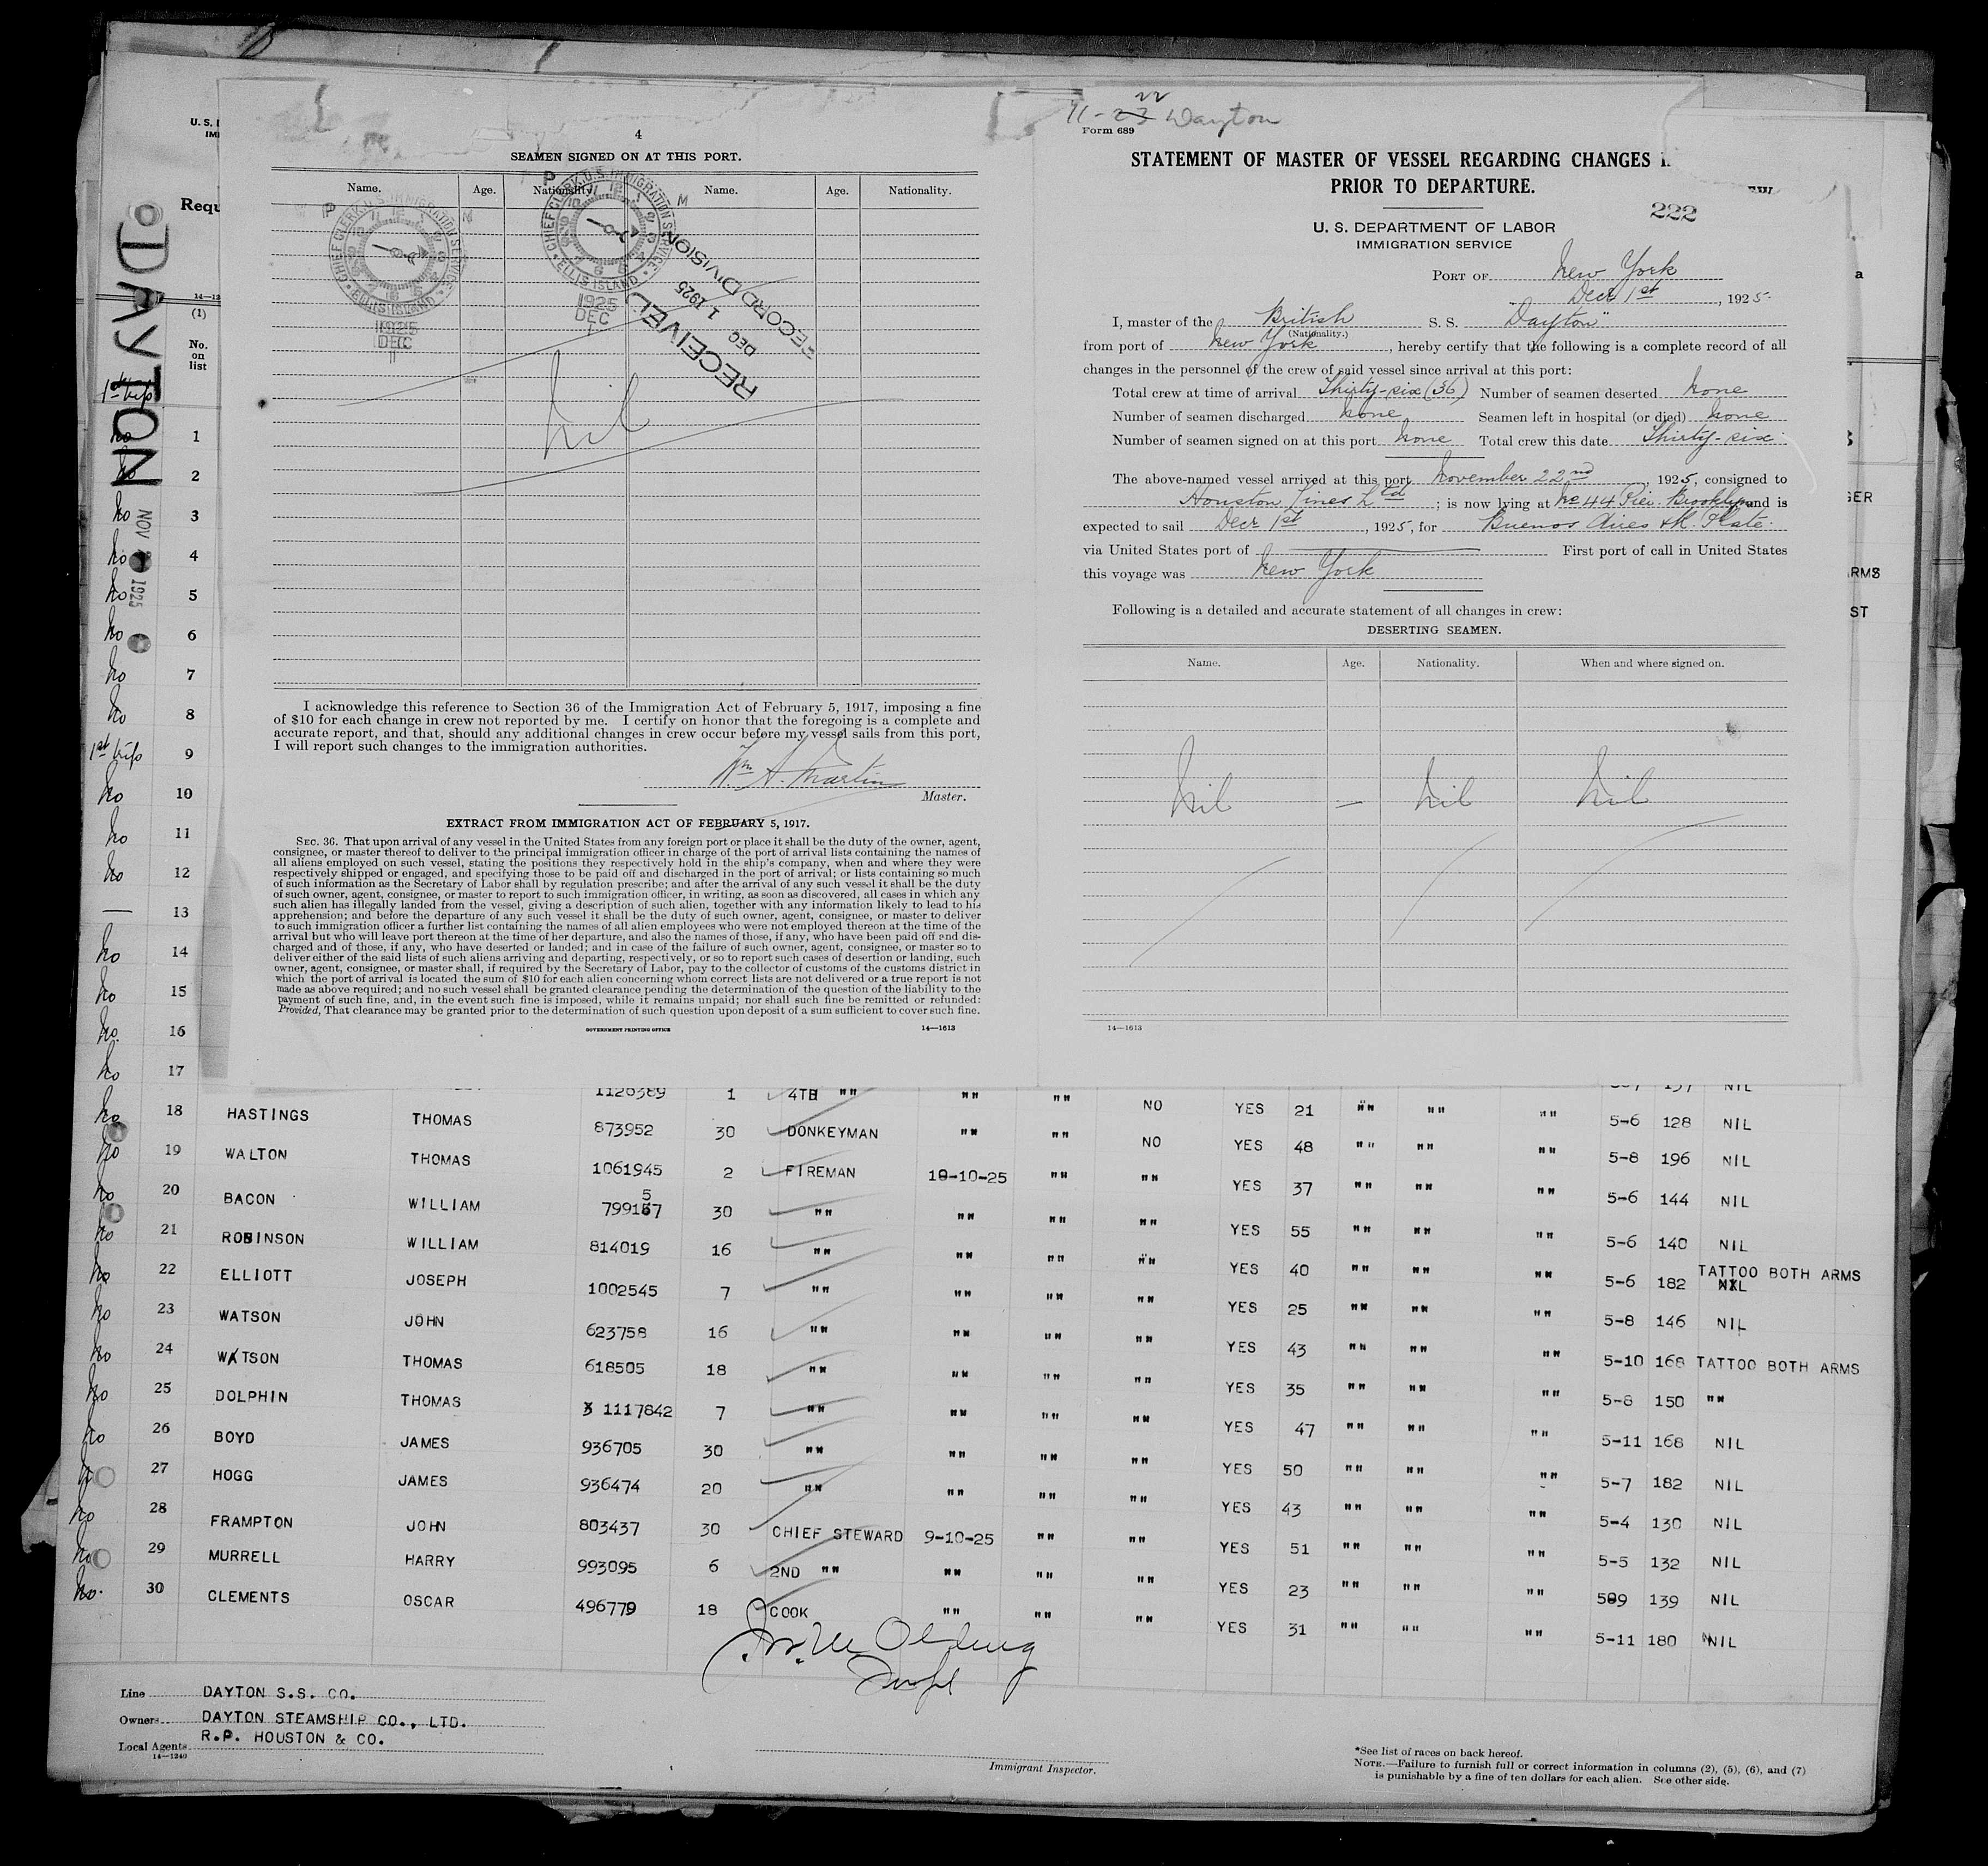 U. S. I
IMI
Requ
14—12
(1)
No.
on
list
DAYTON
NOV 1925
4
SEAMEN SIGNED ON AT THIS PORT.
Name. Age. Nationality. Name. Age. Nationality.
P M
CHIEF CLERK, U.S. IMMIGRATION SERVICE
ELLIS ISLAND
1925
DEC
1
P M
CHIEF CLERK, U.S. IMMIGRATION SERVICE
ELLIS ISLAND
1925
DEC
1
RECEIVED
DEC 1 1925
RECORD DIVISION
Nil
I acknowledge this reference to Section 36 of the Immigration Act of February 5, 1917, imposing a fine
of $10 for each change in crew not reported by me. I certify on honor that the foregoing is a complete and
accurate report, and that, should any additional changes in crew occur before my vessel sails from this port,
I will report such changes to the immigration authorities.
Wm A. Martin
Master.
EXTRACT FROM IMMIGRATION ACT OF FEBRUARY 5, 1917.
SEC. 36. That upon arrival of any vessel in the United States from any foreign port or place it shall be the duty of the owner, agent,
consignee, or master thereof to deliver to the principal immigration officer in charge of the port of arrival lists containing the names of
all aliens employed on such vessel, stating the positions they respectively hold in the ship's company, when and where they were
respectively shipped or engaged, and specifying those to be paid off and discharged in the port of arrival; or lists containing so much
of such information as the Secretary of Labor shall by regulation prescribe; and after the arrival of any such vessel it shall be the duty
of such owner, agent, consignee, or master to report to such immigration officer, in writing, as soon as discovered, all cases in which any
such alien has illegally landed from the vessel, giving a description of such alien, together with any information likely to lead to his
apprehension; and before the departure of any such vessel it shall be the duty of such owner, agent, consignee, or master to deliver
to such immigration officer a further list containing the names of all alien employees who were not employed thereon at the time of the
arrival but who will leave port thereon at the time of her departure, and also the names of those, if any, who have been paid off and dis-
charged and of those, if any, who have deserted or landed; and in case of the failure of such owner, agent, consignee, or master so to
deliver either of the said lists of such aliens arriving and departing, respectively, or so to report such cases of desertion or landing, such
owner, agent, consignee, or master shall, if required by the Secretary of Labor, pay to the collector of customs of the customs district in
which the port of arrival is located the sum of $10 for each alien concerning whom correct lists are not delivered or a true report is not
made as above required; and no such vessel shall be granted clearance pending the determination of the question of the liability to the
payment of such fine, and, in the event such fine is imposed, while it remains unpaid; nor shall such fine be remitted or refunded:
Provided, That clearance may be granted prior to the determination of such question upon deposit of a sum sufficient to cover such fine.
GOVERNMENT PRINTING OFFICE 14—1613
22
11-23 Dayton
Form 689
STATEMENT OF MASTER OF VESSEL REGARDING CHANGES I
PRIOR TO DEPARTURE.
222
U. S. DEPARTMENT OF LABOR
IMMIGRATION SERVICE
PORT OF New York
Decr 1st, 1925.
I, master of the British S. S. "Dayton"
(Nationality.)
from port of New York, hereby certify that the following is a complete record of all
changes in the personnel of the crew of said vessel since arrival at this port:
Total crew at time of arrival Thirty-six (36) Number of seamen deserted none
Number of seamen discharged none Seamen left in hospital (or died) none
Number of seamen signed on at this port none Total crew this date Thirty-six
The above-named vessel arrived at this port November 22nd, 1925, consigned to
Houston Lines Ltd; is now lying at No 44 Pier Brooklyn and is
expected to sail Decr 1st, 1925, for Buenos Aires & R. Plate.
via United States port of First port of call in United States
this voyage was New York
Following is a detailed and accurate statement of all changes in crew:
DESERTING SEAMEN.
Name. Age. Nationality. When and where signed on.
Nil — Nil Nil
14—1613
a
GER
ARMS
ST
1st trip
no 1
no 2
no 3
no 4
no 5
no 6
no 7
no 8
1st trip 9
no 10
no 11
no 12
— 13
no 14
no 15
no 16
no 17 1120389 1 4TH "" "" "" NO YES 21 "" "" "" 5-6 128 NIL
no 18 HASTINGS THOMAS 873952 30 DONKEYMAN "" "" NO YES 48 "" "" "" 5-8 196 NIL
no 19 WALTON THOMAS 1061945 2 FIREMAN 10-10-25 "" "" YES 37 "" "" "" 5-6 144 NIL
no 20 BACON WILLIAM 799157 30 "" "" "" "" YES 55 "" "" "" 5-6 140 NIL
no 21 ROBINSON WILLIAM 814019 16 "" "" "" "" YES 40 "" "" "" 5-6 182 TATTOO BOTH ARMS
no 22 ELLIOTT JOSEPH 1002545 7 "" "" "" "" YES 25 "" "" "" 5-8 146 NIL
no 23 WATSON JOHN 623758 16 "" "" "" "" YES 43 "" "" "" 5-10 168 TATTOO BOTH ARMS
no 24 WATSON THOMAS 618505 18 "" "" "" "" YES 35 "" "" "" 5-8 150 ""
no 25 DOLPHIN THOMAS 1117842 7 "" "" "" "" YES 47 "" "" "" 5-11 168 NIL
no 26 BOYD JAMES 936705 30 "" "" "" "" YES 50 "" "" "" 5-7 182 NIL
no 27 HOGG JAMES 936474 20 "" "" "" "" YES 43 "" "" "" 5-4 130 NIL
no 28 FRAMPTON JOHN 803437 30 CHIEF STEWARD 9-10-25 "" "" YES 51 "" "" "" 5-5 132 NIL
no 29 MURRELL HARRY 993095 6 2ND "" "" "" "" YES 23 "" "" "" 589 139 NIL
no. 30 CLEMENTS OSCAR 496779 18 COOK "" "" "" YES 31 "" "" "" 5-11 180 NIL
Line DAYTON S.S. CO.
Owners DAYTON STEAMSHIP CO., LTD.
Local Agents R.P. HOUSTON & CO.
14—1240
Immigrant Inspector.
*See list of races on back hereof.
NOTE.—Failure to furnish full or correct information in columns (2), (5), (6), and (7)
is punishable by a fine of ten dollars for each alien. See other side.